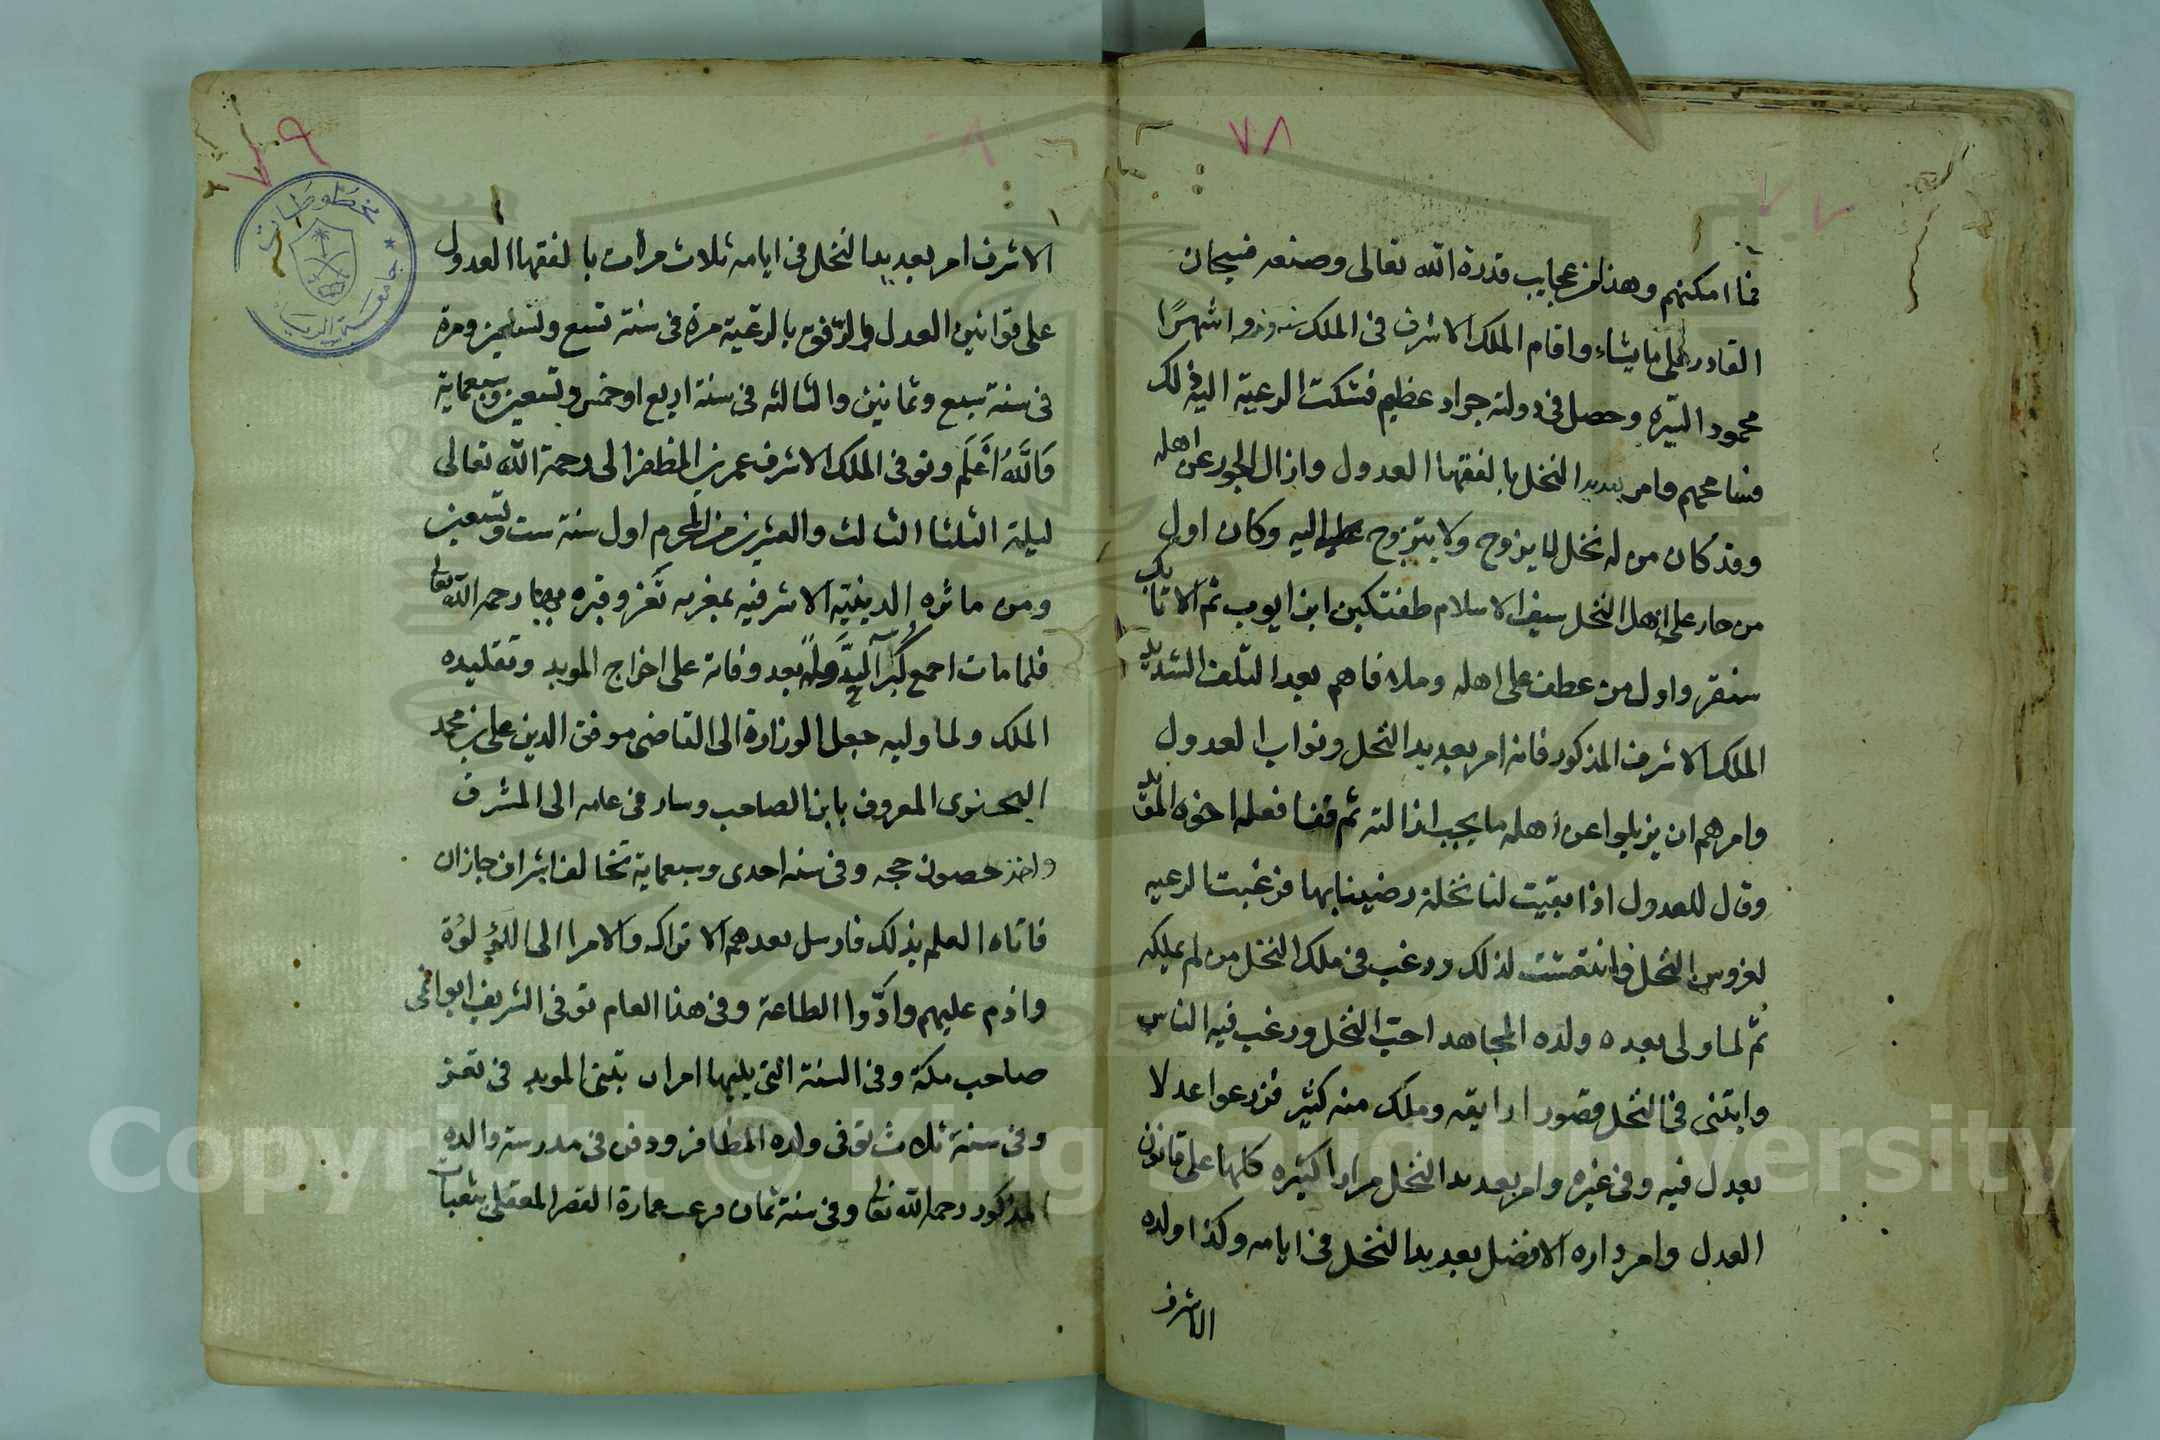 ٧٨
فما امكنهم وهذا من عجايب قدرة الله تعالى وصنعه فسبحان
القادر على ما يشاء واقام الملك الاشرف فى الملك سنه و اشهرًا
محمود السيره وحصل فى دولته جراد عظيم فشكت الرعية اليه ذلك
فسامحهم وامر بعديد النخل بالفقها العدول وازال الجور عن اهله
وقد كان من له نخل لا يزوج ولا يتزوج اليه وكان اول
من جار على اهل النخل سيف الاسلام طغتكين ابن ايوب ثم الاتابك
سنقر واول من عطف على اهله وملافاهم بعد التلف الشديد
الملك الاشرف المذكور فانه امر بعديد النخل ونواب العدول
وامرهم ان يزيلوا عن اهله ما يجب ازالته ثم فعله اخوه المؤيد
وقال للعدول اذا بقيت لنا نخلة رضينا بها فرغبت الرعيه
لغروس النخل وانتعشت لذلك ورغب فى ملك النخل من لم يملكه
ثم لما ولى بعده ولده المجاهد احب النخل ورغب فيه الناس
وابتنى فى النخل قصورا وملك منه كثير فزرعوا عدلا
بعدل فيه وفى غيره وامر بعديد النخل مرارا كثيره كلها على قانون
العدل وامر الافضل بعديد النخل فى ايامه وكذا ولده
الاشرف
٧٩
الاشرف امر بعديد النخل فى ايامه ثلاث مرات بالفقها العدول
على قوانين العدل والرفق بالرعية مرة فى سنة تسع وسبعين ومرة
فى سنة سبع وثمانين والثالثه فى سنة اربع او خمس وتسعين وسبعماية
وَاللَّهُ اَعْلَم وتوفى الملك الاشرف عمر بن المظفر الى رحمة الله تعالى
ليلة الثلثا الثالث والعشرين من المحرم اول سنة ست وتسعين
ومن ماثره الدينيه الاشرفيه بمغربه تعز وقبره بها رحمه الله تعالى
فلما مات اجمع كبرآ الدولة بعد وفاته على اخراج المويد وتقليده
الملك ولما وليه جعل الوزارة الى القاضى موفق الدين على بن محمد
اليحنوى المعروف بابن الصاحب وسار فى عامه الى المشرف
واخذ حصون حجه وفى سنه احدى وسبعماية تخالف اشراف جازان
فاتاه العلم بذلك فارسل بعدهم الاتراك والامرا الى اللؤلؤة
واذم عليهم وادّوا الطاعة وفى هذا العام توفى الشريف ابو نمى
صاحب مكة وفى السنة التى يليها امر ان يبتنى المويد فى تعز
وفى سنة ثلاث توفى ولده المظافر ودفن فى مدرسة والده
المذكور رحمه الله تعالى وفى سنة ثمان فرغت عمارة القصر المعقلى بثعبات
جامعة الرياض
مخطوطات
Copyright © King Saud University